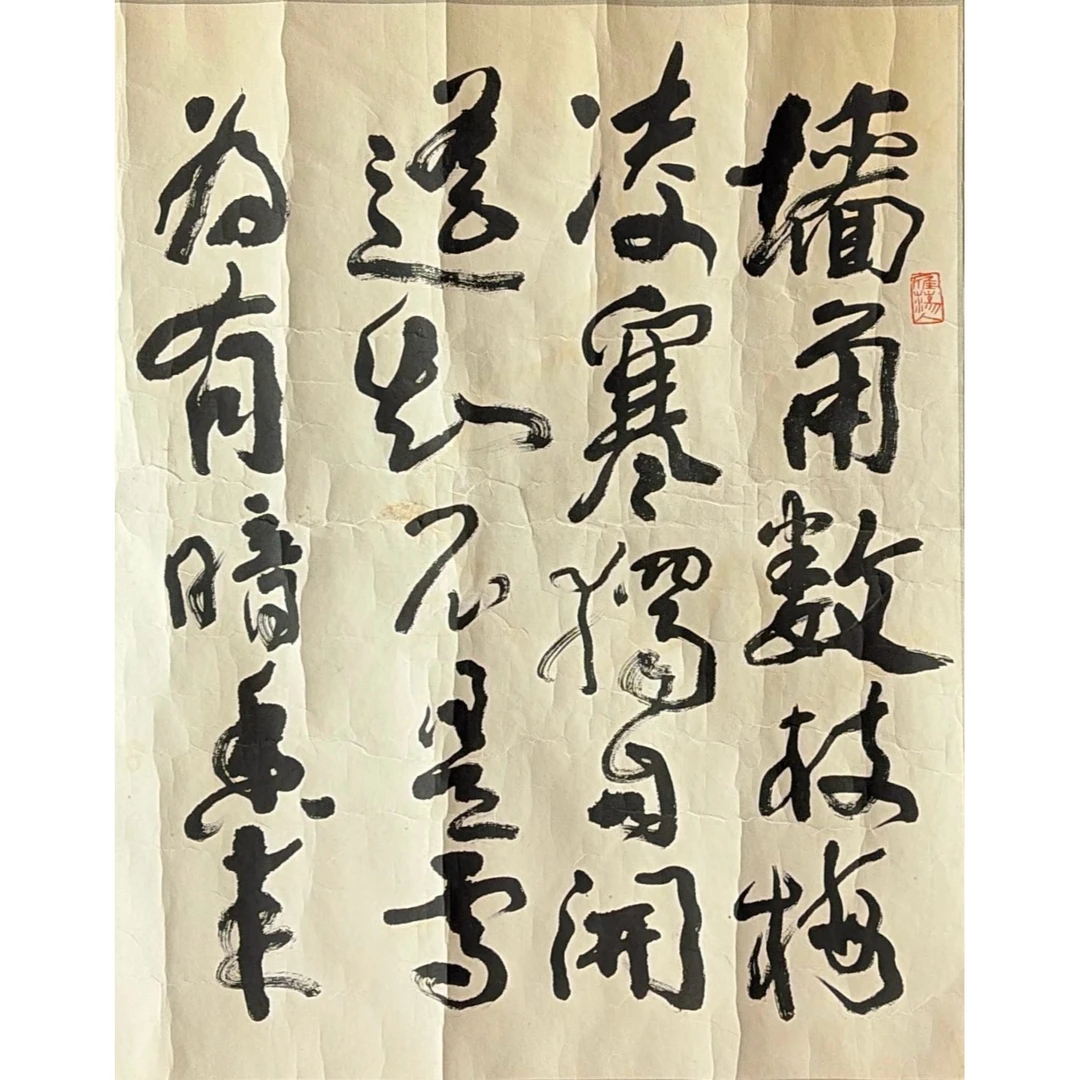 墙角数枝梅
凌寒独自开
遥知不是雪
为有暗香来
雁荡人